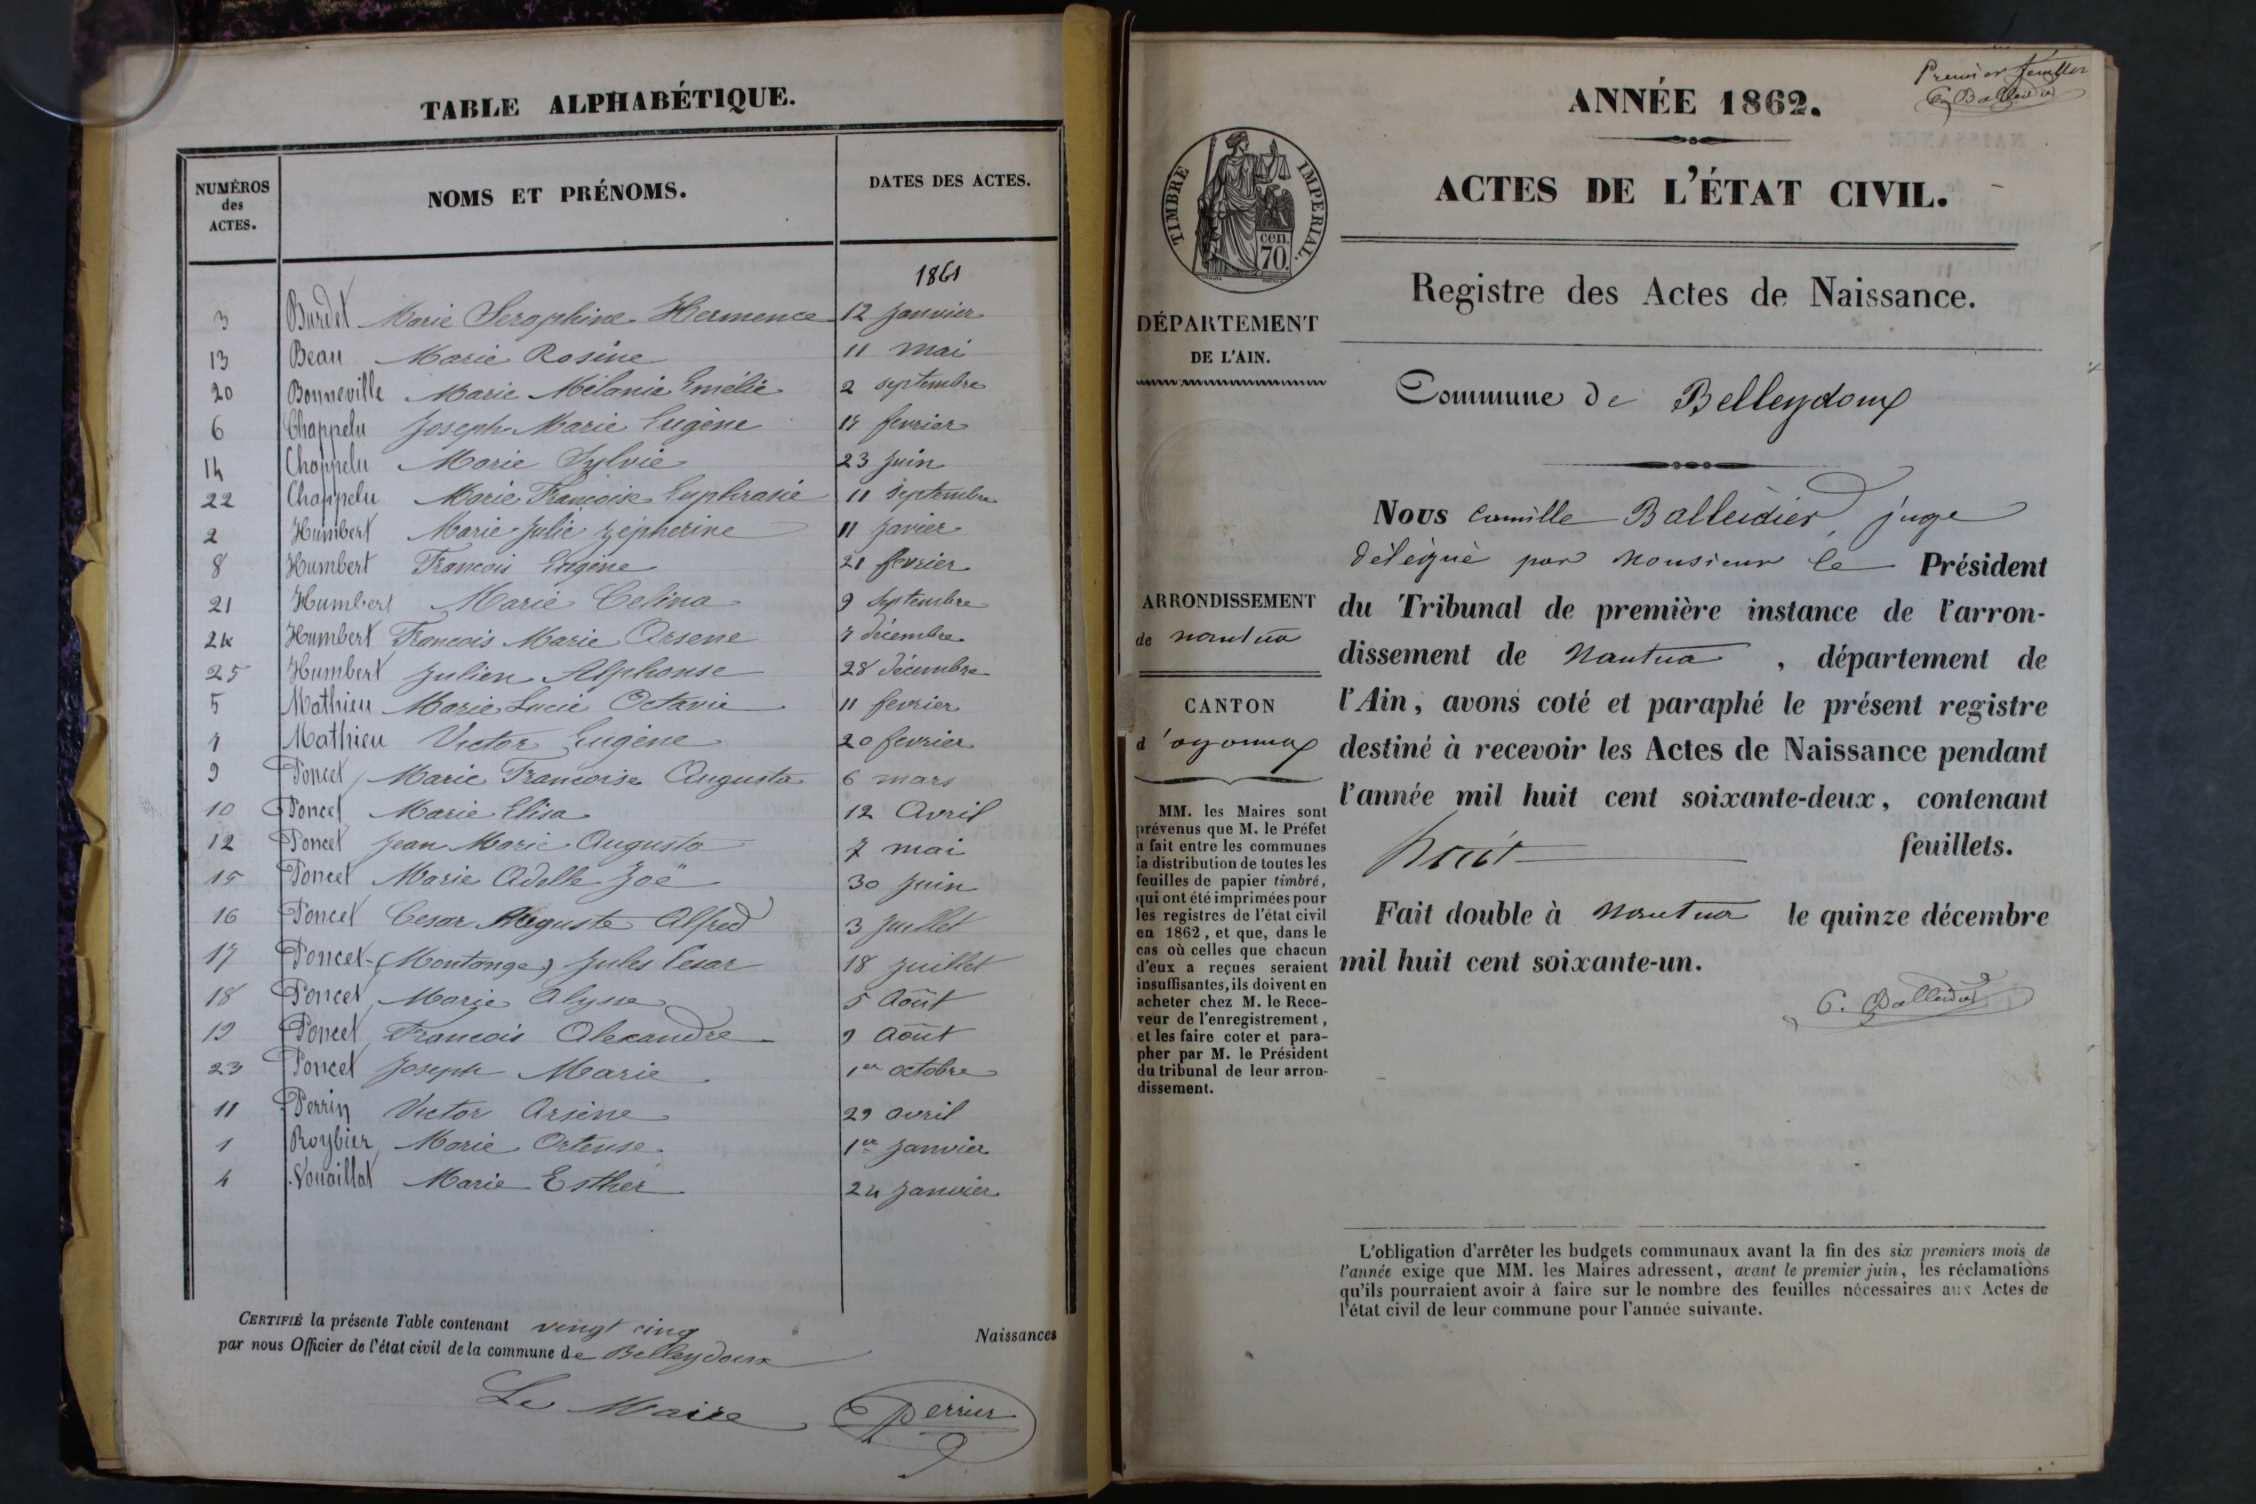 TABLE ALPHABÉTIQUE.
NUMÉROS des ACTES. NOMS ET PRÉNOMS. DATES DES ACTES.
1861
3 Burdet Marie Seraphine Hermence 12 janvier
13 Beau Marie Rosine 11 mai
20 Bonneville Marie Mélanie Emélie 2 septembre
6 Chappelu Joseph Marie Eugène fevrier
14 Chappelu Marie Sylvie 23 juin
22 Chappelu Marie Francoise Euphrasie 11 septembre
2 Humbert Marie Julie Zépherine 11 javier
8 Humbert Francois Eugene 21 fevrier
21 Humbert Marie Celina 9 septembre
24 Humbert Francois Marie Arsene 7 décembre
25 Humbert Julien Alphonse 28 décembre
5 Mathieu Marie Lucie Octavie 11 fevrier
7 Mathieu Victor Eugène 20 fevrier
9 Poncet Marie Francoise Augusta 6 mars
10 Poncet Marie Elisa 12 Avril
12 Poncet Jean Marie Augusta 7 mai
15 Poncet Marie Adelle Zoë 30 juin
16 Poncet Cesar Auguste Alfred 3 juillet
17 Poncet-(Montange) Jules Cesar 18 juillet
18 Poncet Marie Alysse 5 Août
19 Poncet Francois Alexandre 9 Août
23 Poncet Joseph Marie 1er octobre
11 Perrin Victor Arsène 29 avril
1 Roybier Marie Ortense 1er janvier
4 Vouaillat Marie Esther 24 janvier
CERTIFIÉ la présente Table contenant vingt cinq Naissances
par nous Officier de l'état civil de la commune de Belleydoux
Le Maire Perrier
Premier feuillet
C. Balleidier
ANNÉE 1862.
ACTES DE L'ÉTAT CIVIL.
TIMBRE IMPERIAL.
cen.
70.
Registre des Actes de Naissance.
DÉPARTEMENT
DE L'AIN.
Commune de Belleydoux
Nous Camille Balleidier, juge
délégué par Monsieur le Président
du Tribunal de première instance de l'arron-
dissement de Nantua, département de
l'Ain, avons coté et paraphé le présent registre
destiné à recevoir les Actes de Naissance pendant
l'année mil huit cent soixante-deux, contenant
huit feuillets.
Fait double à Nantua le quinze décembre
mil huit cent soixante-un.
C. Balleidier
ARRONDISSEMENT
de Nantua
CANTON
d'oyonnax
MM. les Maires sont
prévenus que M. le Préfet
a fait entre les communes
la distribution de toutes les
feuilles de papier timbré,
qui ont été imprimées pour
les registres de l'état civil
en 1862, et que, dans le
cas où celles que chacun
d'eux a reçues seraient
insuffisantes, ils doivent en
acheter chez M. le Rece-
veur de l'enregistrement,
et les faire coter et para-
pher par M. le Président
du tribunal de leur arron-
dissement.
L'obligation d'arrêter les budgets communaux avant la fin des six premiers mois de
l'année exige que MM. les Maires adressent, avant le premier juin, les réclamations
qu'ils pourraient avoir à faire sur le nombre des feuilles nécessaires aux Actes de
l'état civil de leur commune pour l'année suivante.